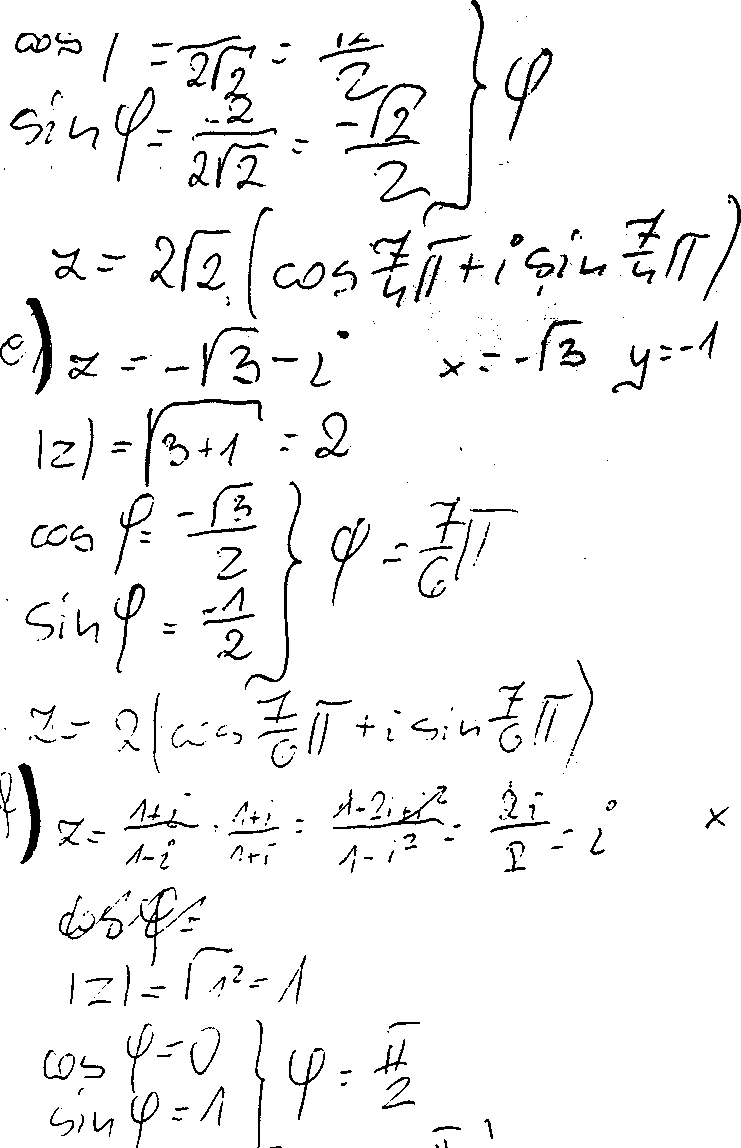 cos φ = 2/2√2 = √2/2 } φ
sin φ = -2/2√2 = -√2/2
z = 2√2 (cos 7/4 π + i sin 7/4 π)
e) z = -√3 - i x = -√3 y = -1
|z| = √3+1 = 2
cos φ = -√3/2 } φ = 7/6 π
sin φ = -1/2
z = 2 (cos 7/6 π + i sin 7/6 π)
f) z = 1+i/1-i · 1+i/1+i = 1-2i+i²/1-i² = 2i/2 = i x
cos φ =
|z| = √1² = 1
cos φ = 0 } φ = π/2
sin φ = 1